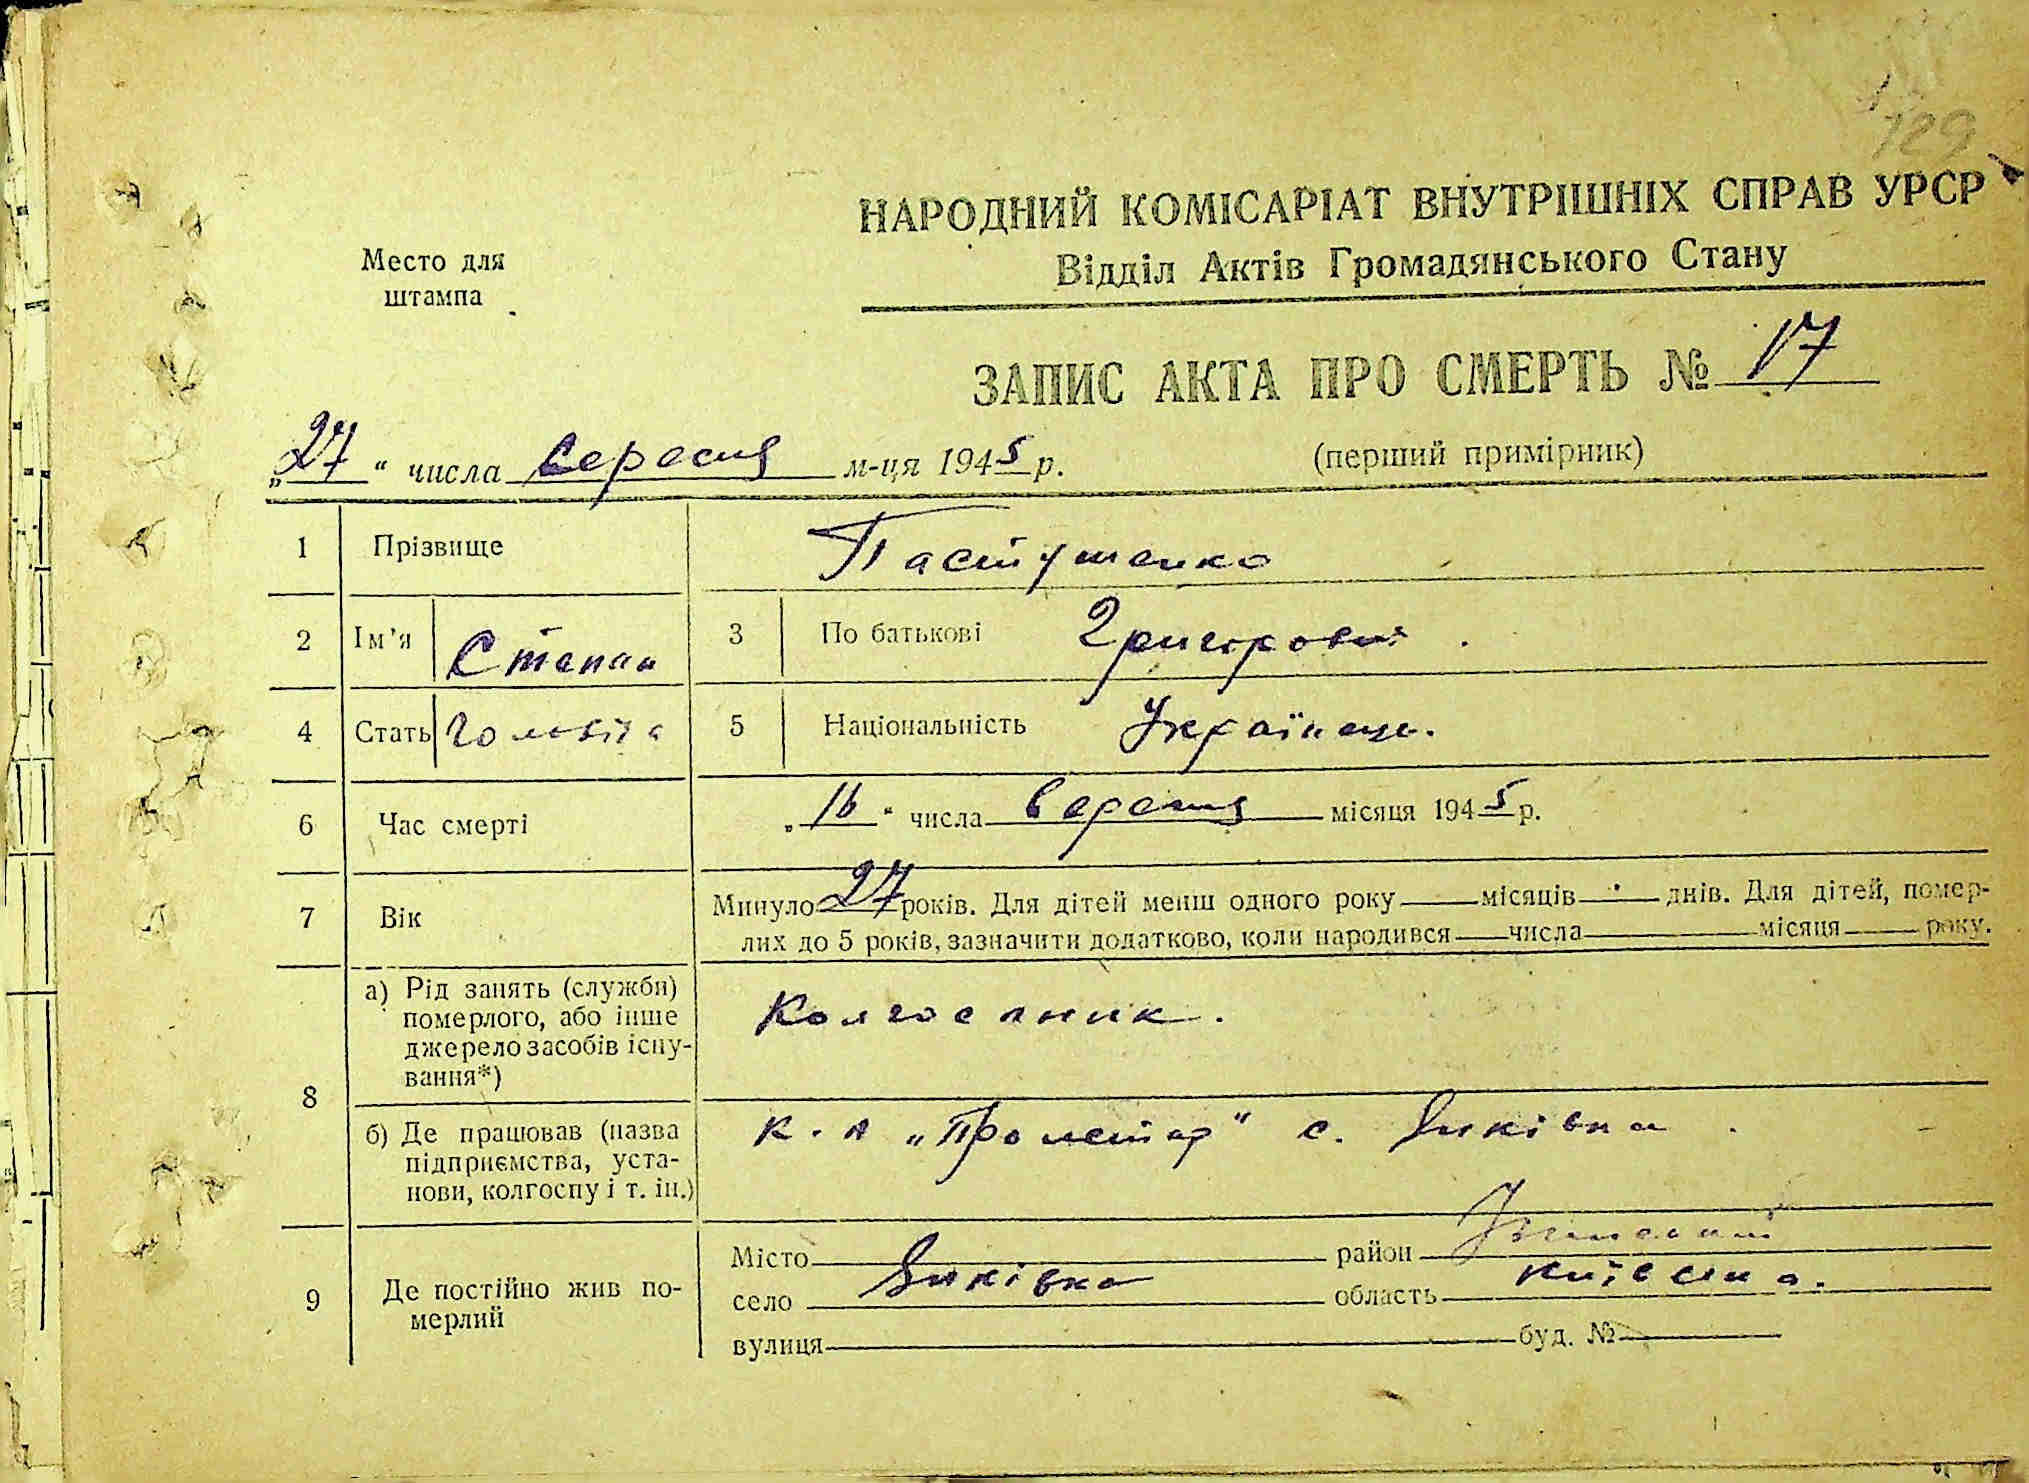 129
НАРОДНИЙ КОМІСАРІАТ ВНУТРІШНІХ СПРАВ УРСР
Место для
штампа
Відділ Актів Громадянського Стану
ЗАПИС АКТА ПРО СМЕРТЬ № 17
„27“ числа Вересня м-ця 1945 р. (перший примірник)
1 Прізвище Пастушенко
2 Ім’я Степан 3 По батькові Григорович
4 Стать Чоловіча 5 Національність Українець.
6 Час смерті „16“ числа Вересня місяця 1945 р.
7 Вік Минуло 27 років. Для дітей менш одного року місяців днів. Для дітей, помер-
лих до 5 років, зазначити додатково, коли народився числа місяця року.
8 а) Рід занять (служби) померлого, або інше джерело засобів існу-вання*) Колгоспник.
б) Де працював (назва підприємства, уста-нови, колгоспу і т. ін.) к-п „Пролетар“ с.
9 Де постійно жив по-мерлий
Місто район
село область Київська.
вулиця буд. №